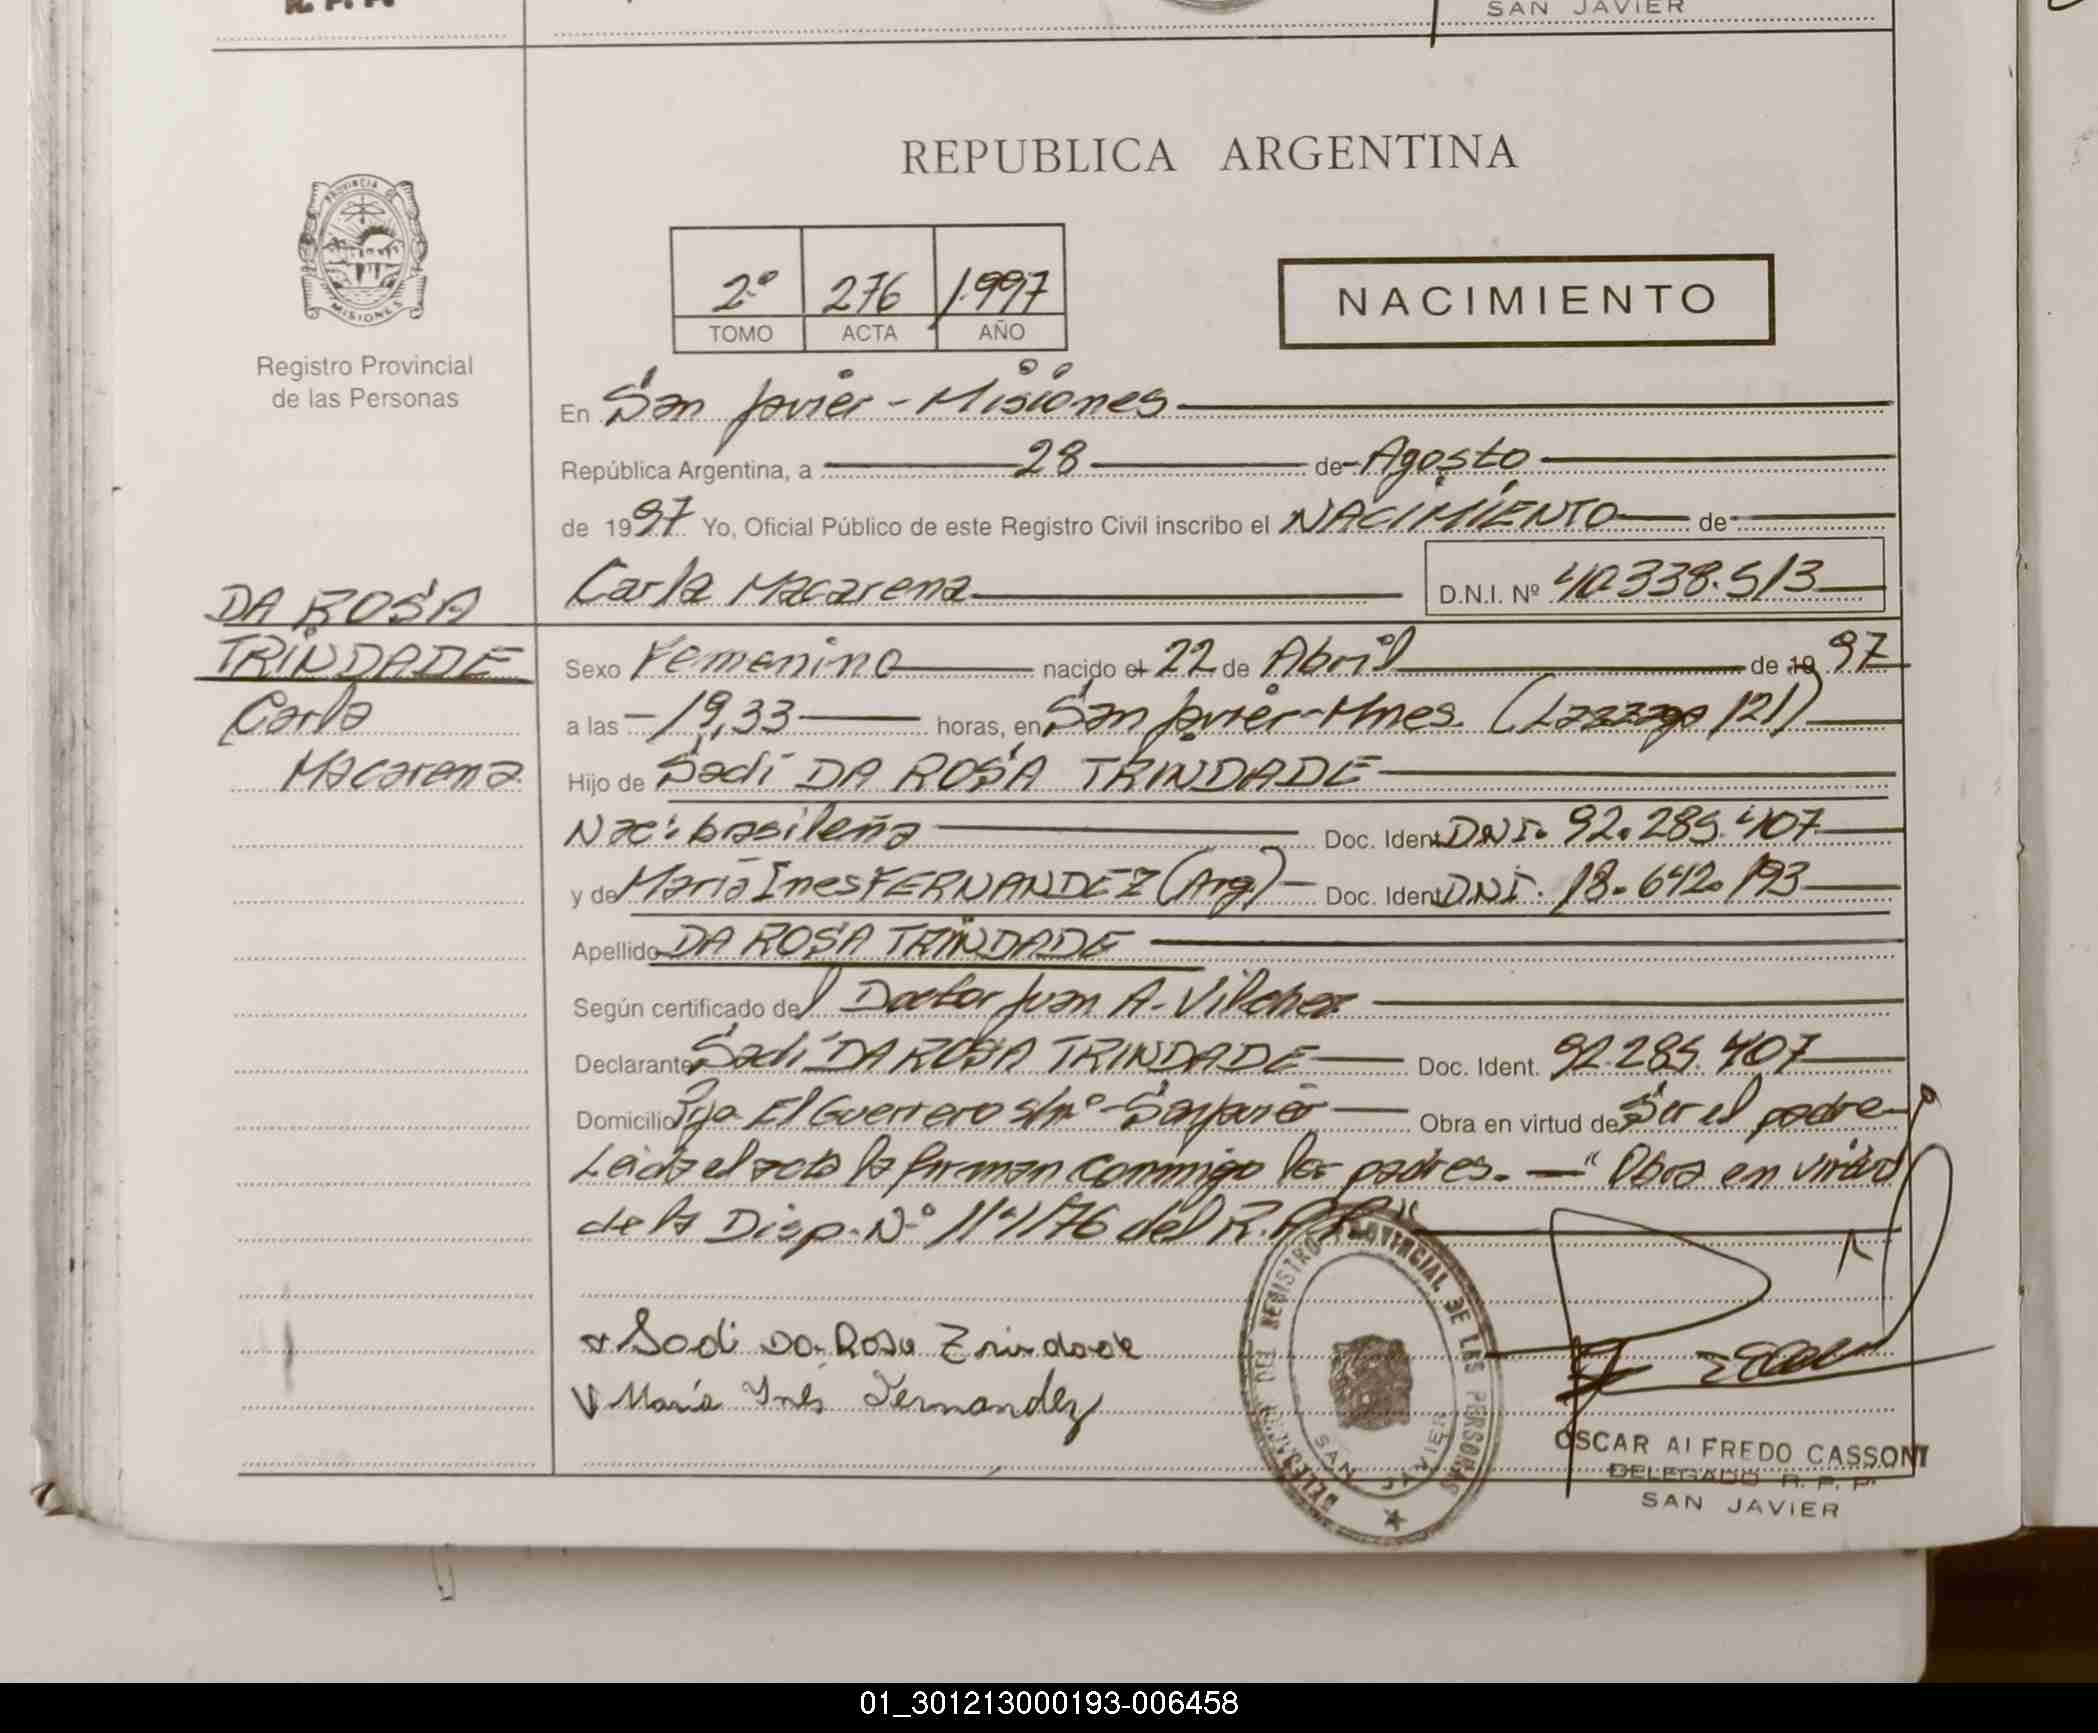 R. P. P.
SAN JAVIER
REPUBLICA ARGENTINA
PROVINCIA DE MISIONES
Registro Provincial
de las Personas
2º 276 1.997
TOMO ACTA AÑO
NACIMIENTO
En San Javier - Misiones
República Argentina, a 28 de Agosto
de 1997 Yo, Oficial Público de este Registro Civil inscribo el NACIMIENTO de
Carla Macarena D.N.I. Nº 40.338.513
DA ROSA
TRINDADE
Carla
Macarena
Sexo Femenino nacido el 22 de Abril de 19 97
a las - 19,33 horas, en San Javier - Mnes. (Lazzaga 121)
Hijo de Sadí DA ROSA TRINDADE
Nac: brasileña Doc. Ident. DNI. 92.285.407
y de María Ines FERNANDEZ (Arg.) - Doc. Ident. DNI. 18.642.193
Apellido DA ROSA TRINDADE
Según certificado del Doctor Juan A. Vilchez
Declarante Sadí DA ROSA TRINDADE Doc. Ident. 92.285.407
Domicilio El Guerrero s/nº - San Javier Obra en virtud de Ser el padre
Leida el acta la firman conmigo los padres. - "Obra en virtud
de la Disp. Nº 141/76 del R.P.P."
Sadi Da Rosa Trindade
María Inés Fernandez
DELEGACION DEL REGISTRO PROVINCIAL DE LAS PERSONAS
SAN JAVIER
OSCAR ALFREDO CASSONI
DELEGADO R. P. P.
SAN JAVIER
01_301213000193-006458